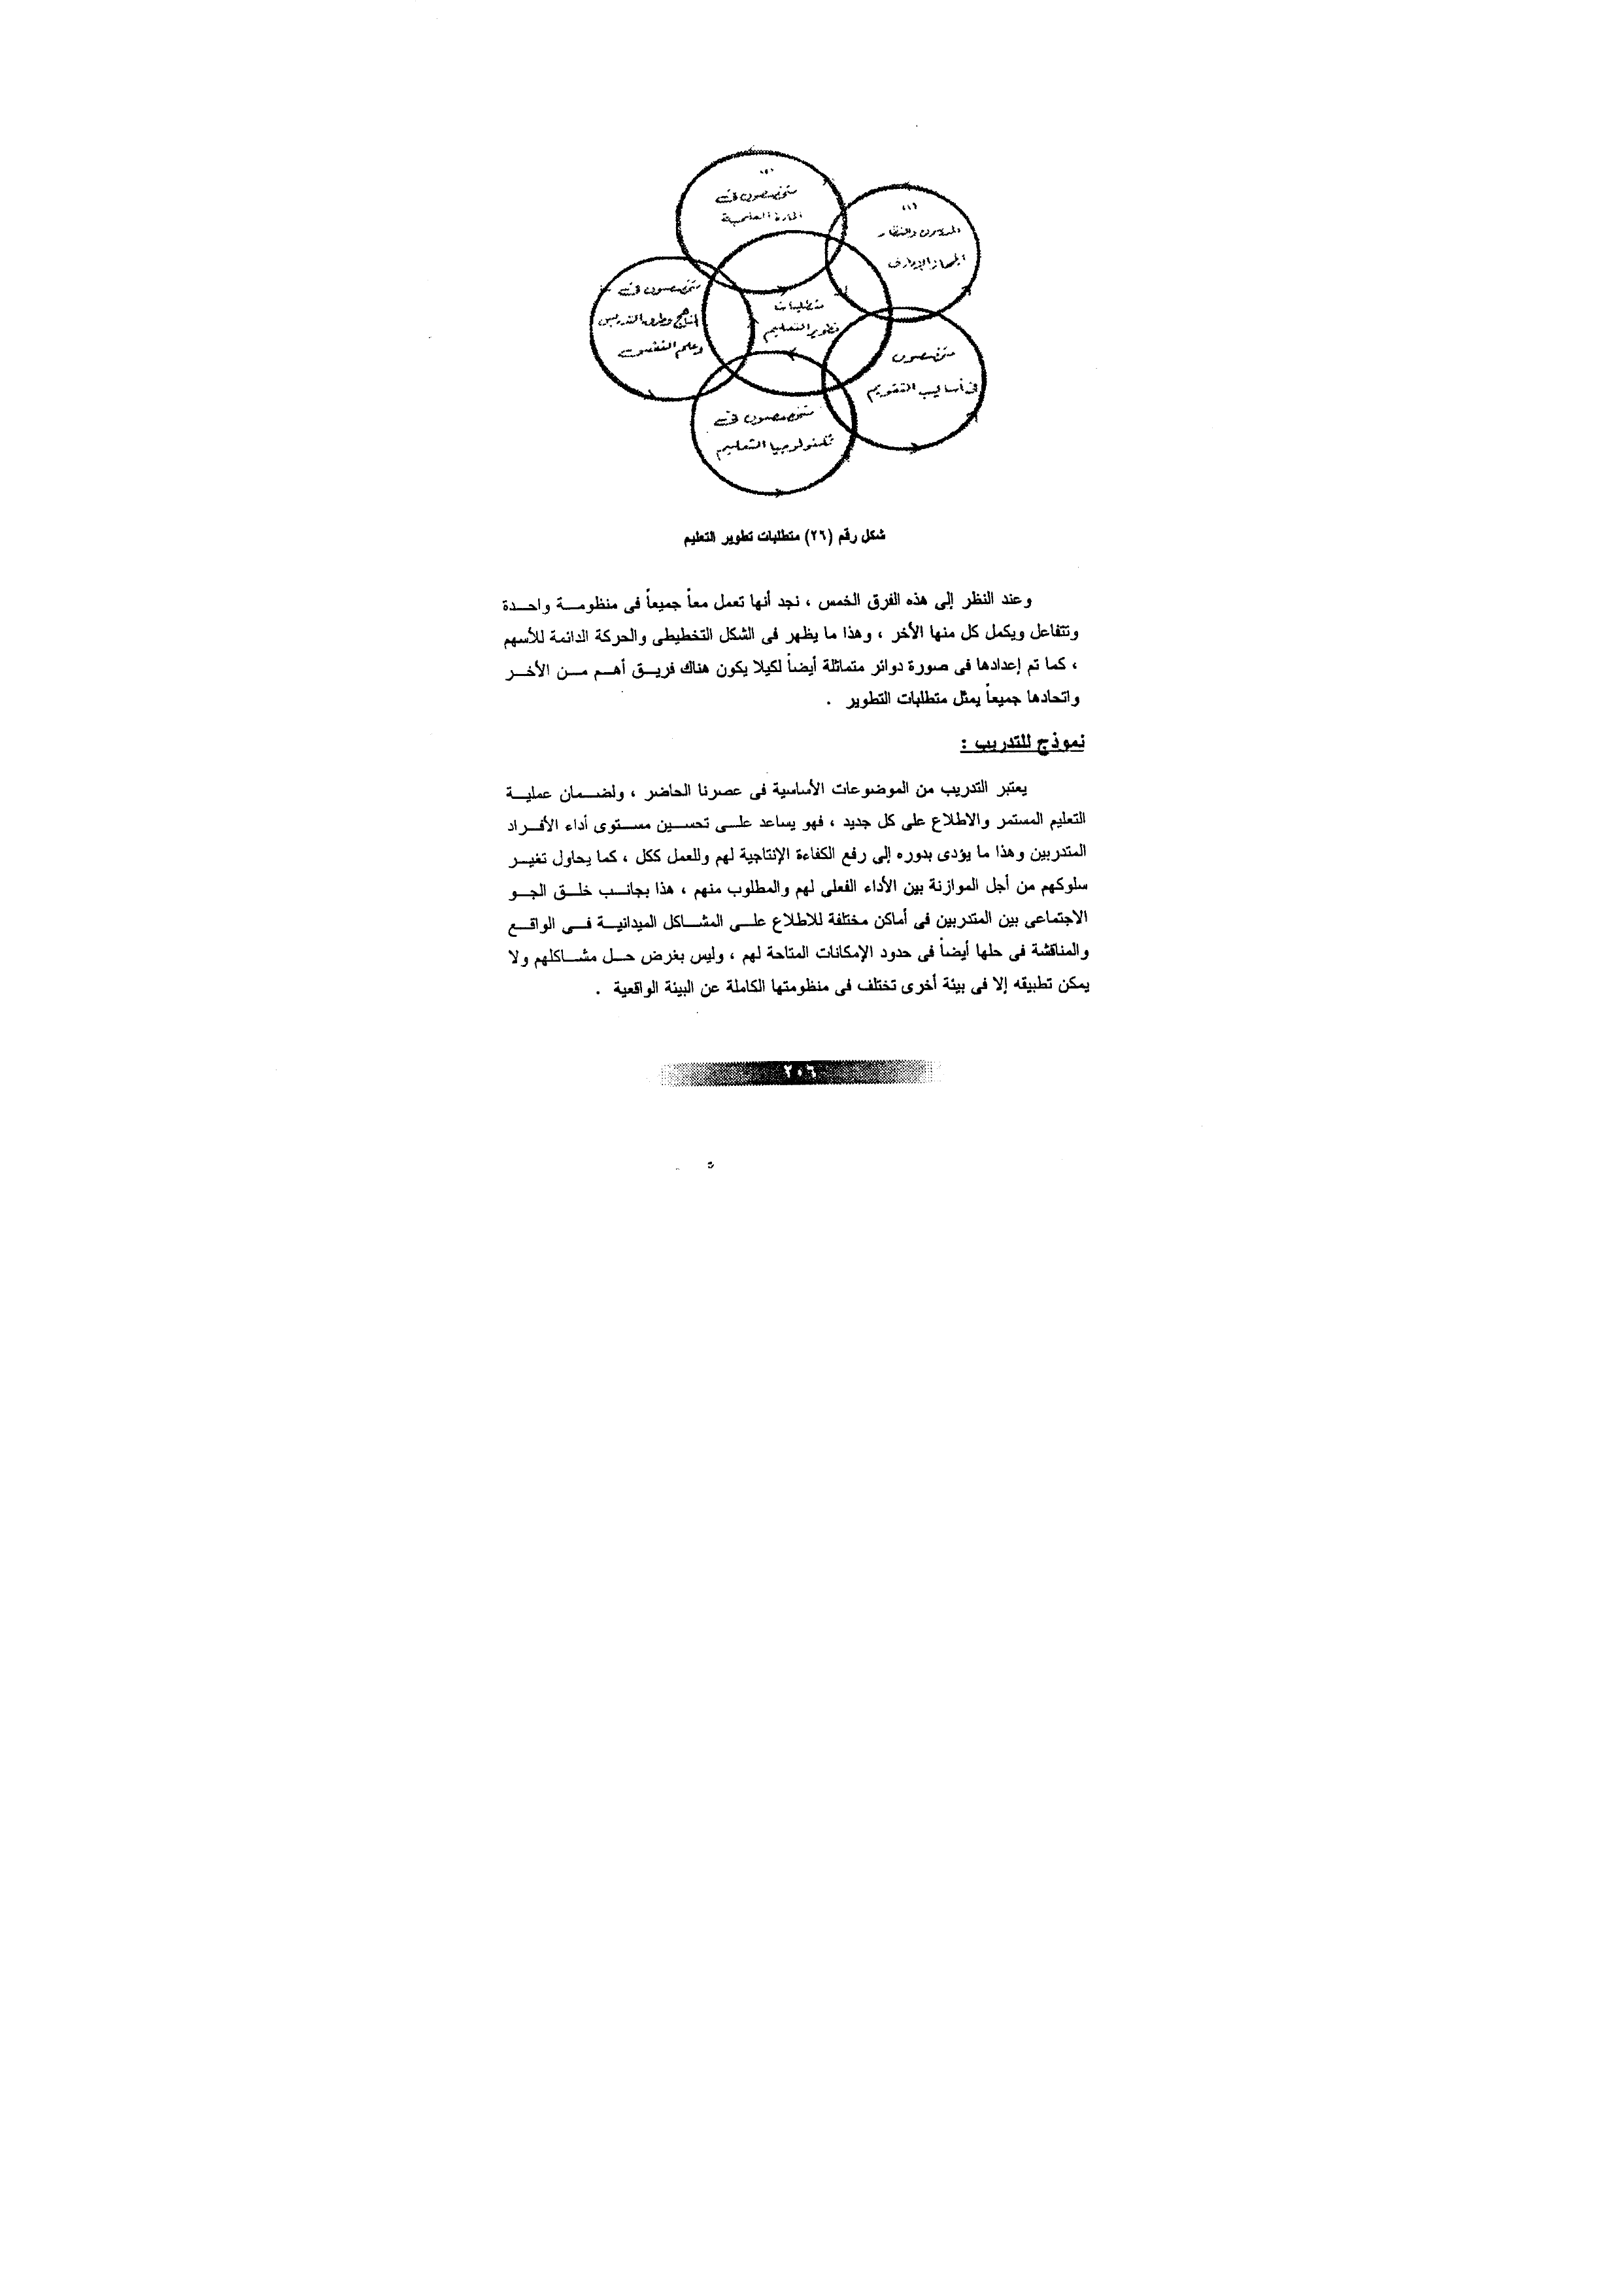 متخصصون فى
المادة العلمية
المدرسون والنظار
الجهاز الإدارى
متخصصون فى
المناهج وطرق التدريس
وعلم النفس
متطلبات
تطوير التعليم
متخصصون
فى أساليب التقويم
متخصصون فى
تكنولوجيا التعليم
شكل رقم (٢٦) متطلبات تطوير التعليم
وعند النظر إلى هذه الفرق الخمس ، نجد أنها تعمل معاً جميعاً فى منظومة واحدة
وتتفاعل ويكمل كل منها الأخر ، وهذا ما يظهر فى الشكل التخطيطى والحركة الدائمة للأسهم
، كما تم إعدادها فى صورة دوائر متماثلة أيضاً لكيلا يكون هناك فريق أهم من الأخر
واتحادها جميعاً يمثل متطلبات التطوير .
نموذج للتدريب :
يعتبر التدريب من الموضوعات الأساسية فى عصرنا الحاضر ، ولضمان عملية
التعليم المستمر والاطلاع على كل جديد ، فهو يساعد على تحسين مستوى أداء الأفراد
المتدربين وهذا ما يؤدى بدوره إلى رفع الكفاءة الإنتاجية لهم وللعمل ككل ، كما يحاول تغيير
سلوكهم من أجل الموازنة بين الأداء الفعلى لهم والمطلوب منهم ، هذا بجانب خلق الجو
الاجتماعى بين المتدربين فى أماكن مختلفة للاطلاع على المشاكل الميدانية فى الواقع
والمناقشة فى حلها أيضاً فى حدود الإمكانات المتاحة لهم ، وليس بغرض حل مشاكلهم ولا
يمكن تطبيقه إلا فى بيئة أخرى تختلف فى منظومتها الكاملة عن البيئة الواقعية .
٢٠٦